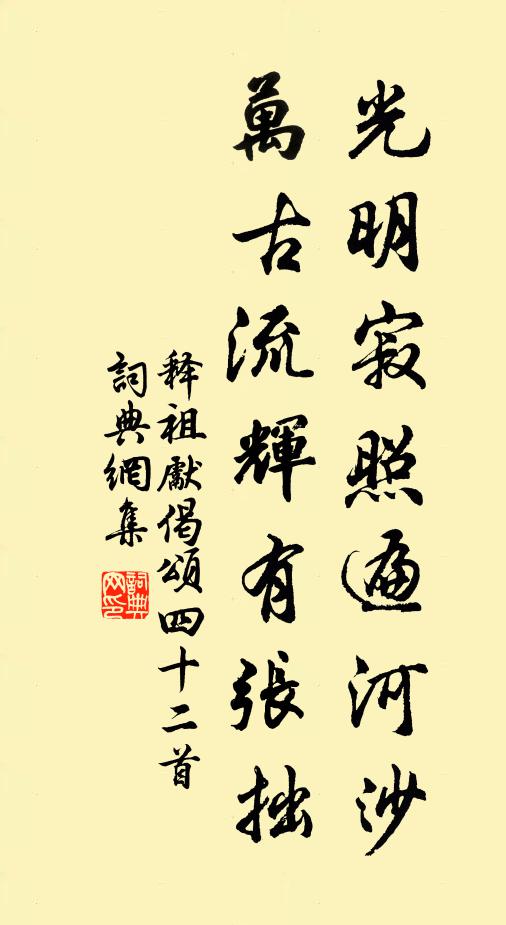 光明寂照遍河沙
萬古流輝有張拙
释祖獻偈頌四十二首
詞典網集
詞典网印